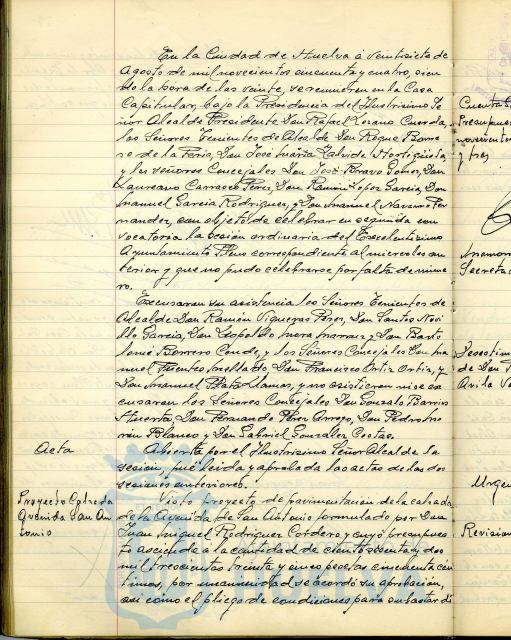 En la Ciudad de Huelva á veintisiete de
Agosto de mil novecientos cincuenta y cuatro, sien
do la hora de las veinte, se reunieron en la Casa
Capitular, bajo la Presidencia del Ilustrísimo Se
ñor Alcalde Presidente Don Rafael Lozano Cuerda,
los Señores Tenientes de Alcalde Don Roque Borre
ro de la Feria, Don José María Zalvide Hortigüela,
y los señores Concejales Don José Bravo Don
Laureano Carrasco Pérez, Don Ramón López García, Don
Manuel García Rodríguez, y Don Manuel Navarro Fer
nandez, con objeto de celebrar en segunda con
vocatoria la sesión ordinaria del Excelentísimo
Ayuntamiento Pleno correspondiente al miercoles an
terior y que no pudo celebrarse por falta de núme
ro.
Excusaron su asistencia los Señores Tenientes de
Alcalde Don Ramón Vigueras Pérez, Don Santos Novi
llo García, Don Leopoldo Mora y Don Barto
lomé Borrero Conde, y los Señores Concejales Don Ma
nuel Fuentes Mellado, Don Francisco Ortiz Ortiz, y
Don Manuel Plata Llamas, y no asistieron ni se ex
cusaron los Señores Concejales Don Gonzalo Barrios
Huerta, Don Fernando Pérez Arroyo, Don Pedro Mo
rón Blanes y Don Gabriel Gonzalez Costas.
Acta
Abierta por el Ilustrísimo Señor Alcalde la
sesión, fué leída y aprobada las actas de las dos
sesiones anteriores.
Proyecto Calzada
Avenida San An
tonio
Visto proyecto de pavimentación de la calzada
de la Avenida de San Antonio formulado por Don
Juan Miguel Rodríguez Cordero y cuyo presupues
to asciende á la cantidad de ciento sesenta y dos
mil trescientas treinta y cinco pesetas cincuenta cén
timos, por unanimidad se acordó su aprobación,
así como el pliego de condiciones para subastar di
Cuenta
Presupues
novecientos
y tres
Secreta
Desestim
de San
Avila
Urgen
Revision
HUELVA